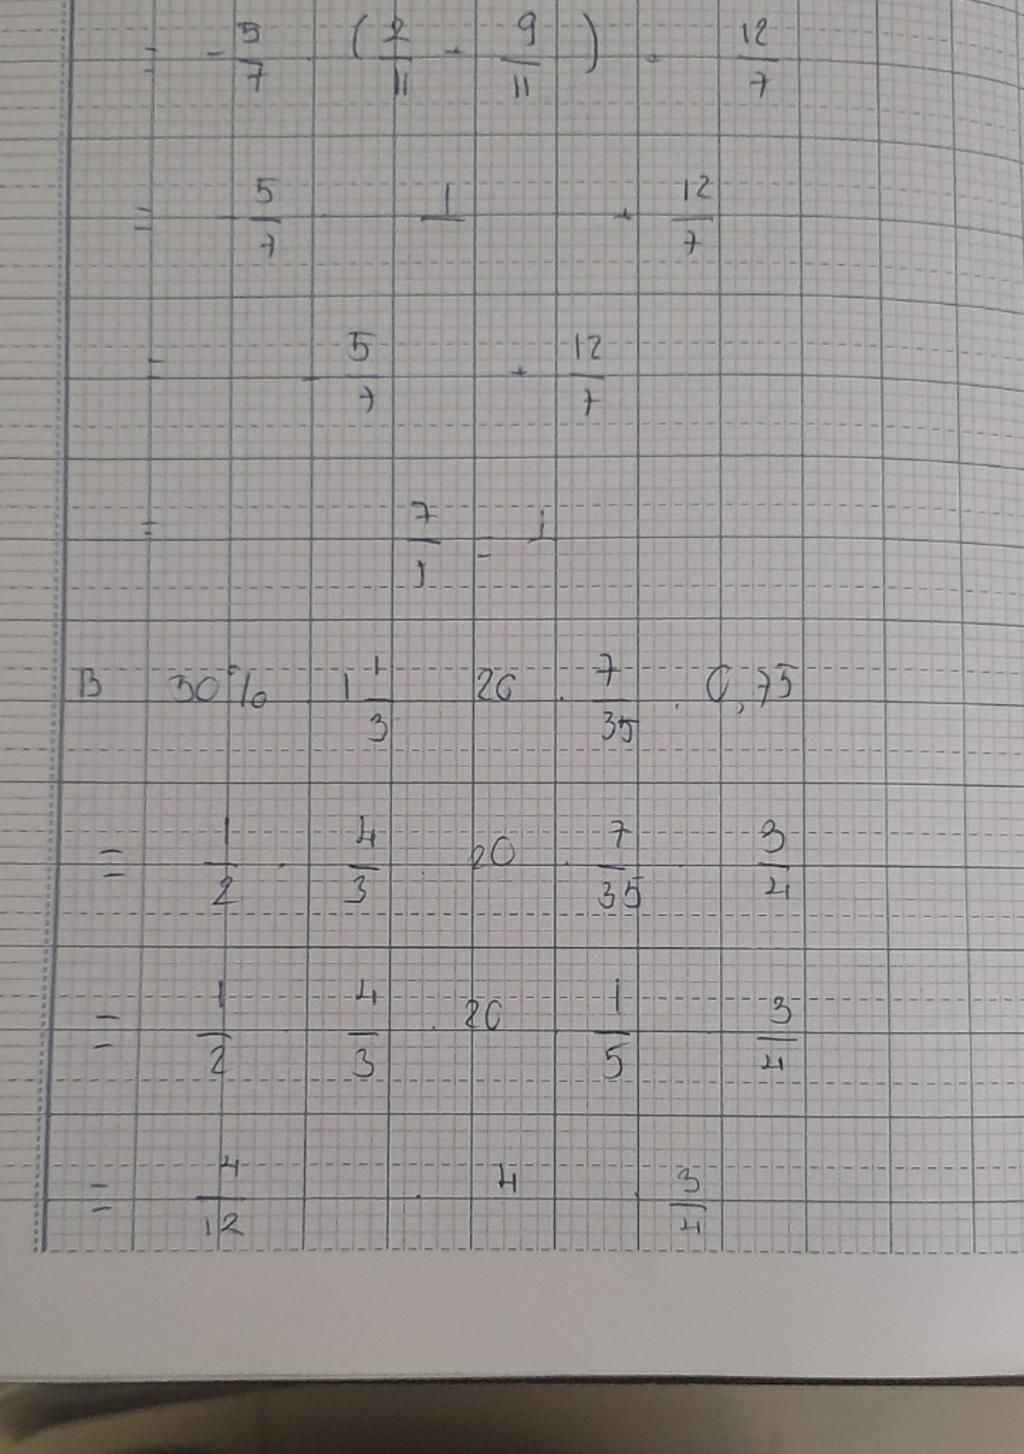 = - 5/7 · (2/11 + 9/11) + 12/7
= - 5/7 · 1 + 12/7
= - 5/7 + 12/7
= 7/7 = 1
B 50% · 1 1/3 · 20 · 7/35 · 0,75
= 1/2 · 4/3 · 20 · 7/35 · 3/4
= 1/2 · 4/3 · 20 · 1/5 · 3/4
= 4/12 · 4 · 3/4